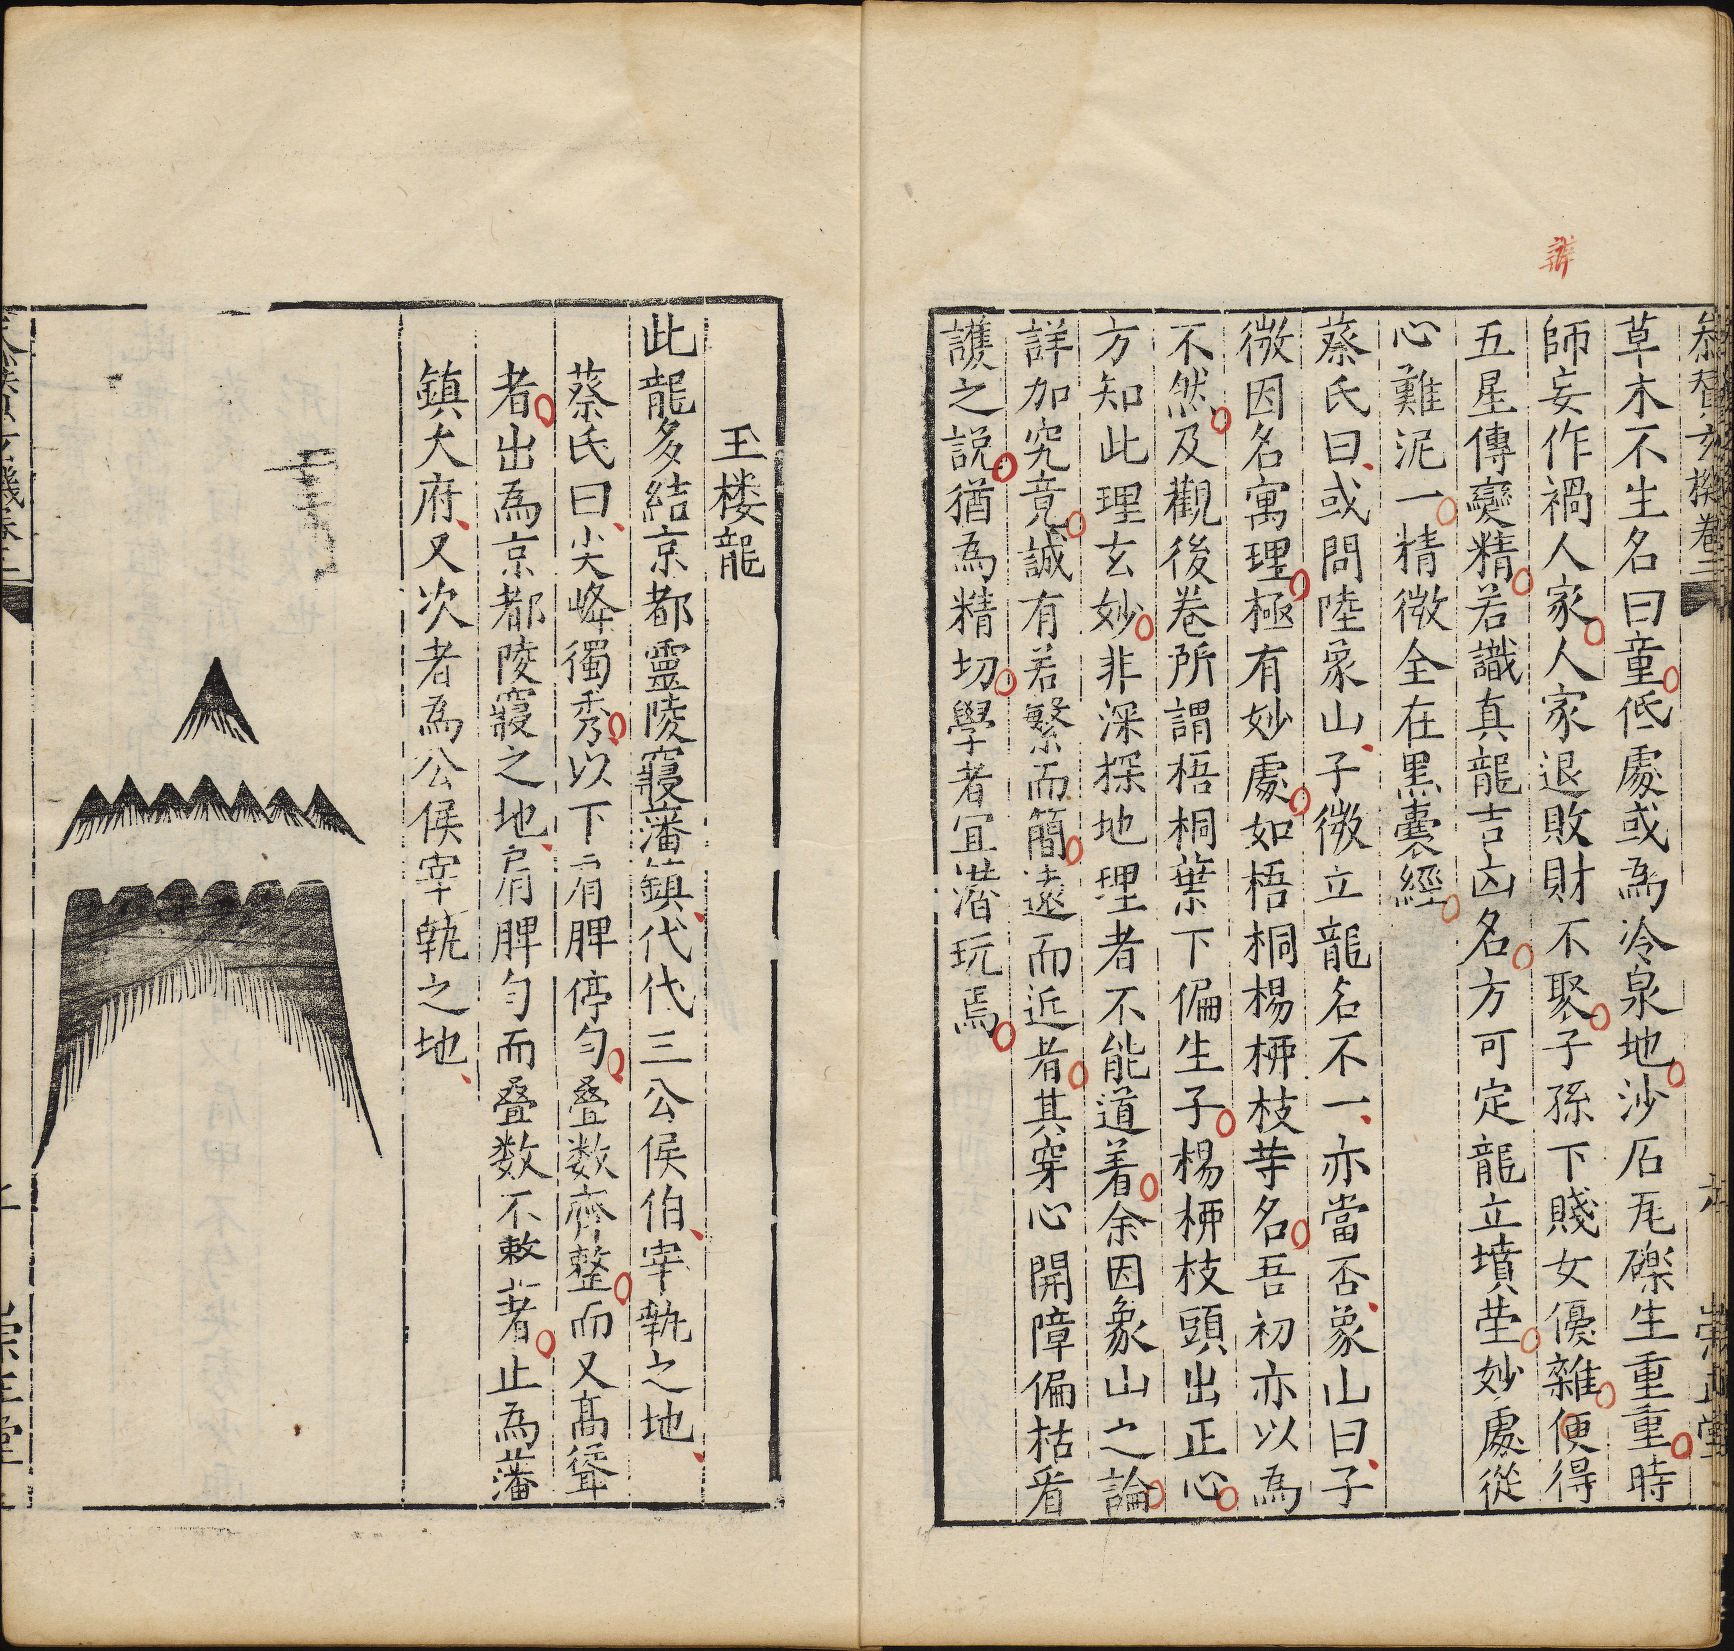 辯
草木不生名曰童低處或爲冷泉地沙石瓦礫生重重時
師妄作禍人家人家退敗財不聚子孫下賤女優雜便得
五星傳變精若識真龍吉凶名方可定龍立墳塋妙處從
心難泥一精微全在黑囊經
蔡氏曰或問陸象山子微立龍名不一亦當否象山曰子
微因名寓理極有妙處如梧桐楊栁枝等名吾初亦以爲
不然及觀後卷所謂梧桐葉下偏生子楊栁枝頭出正心
方知此理玄妙非深探地理者不能道着余因象山之論
詳加究竟誠有若繁而簡遠而近者其穿心開障偏枯看
護之說猶爲精切學者宜潛玩焉
玉楼龍
此龍多結京都靈陵寢藩鎮代代三公侯伯宰執之地
蔡氏曰尖峰獨秀以下肩脾停勻叠数齊整而又髙聳
者出爲京都陵寢之地肩脾勻而叠数不敷者止爲藩
鎮大府又次者爲公侯宰執之地